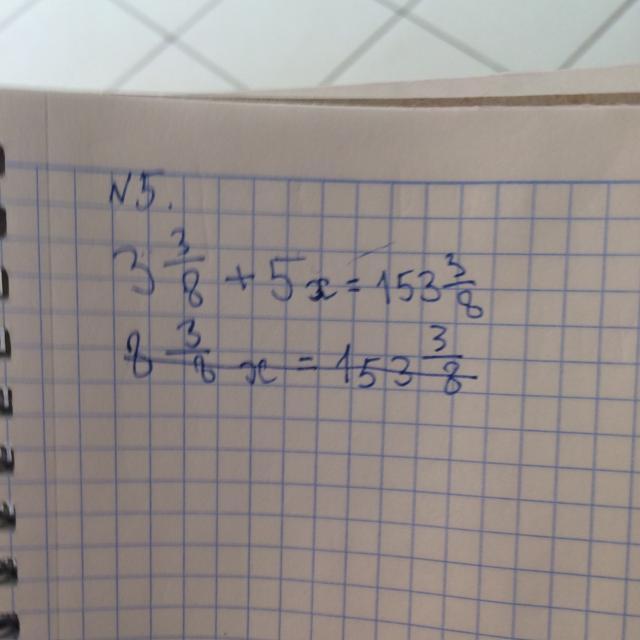 N5.
3 3/8 + 5x = 153 3/8
8 3/8 x = 153 3/8